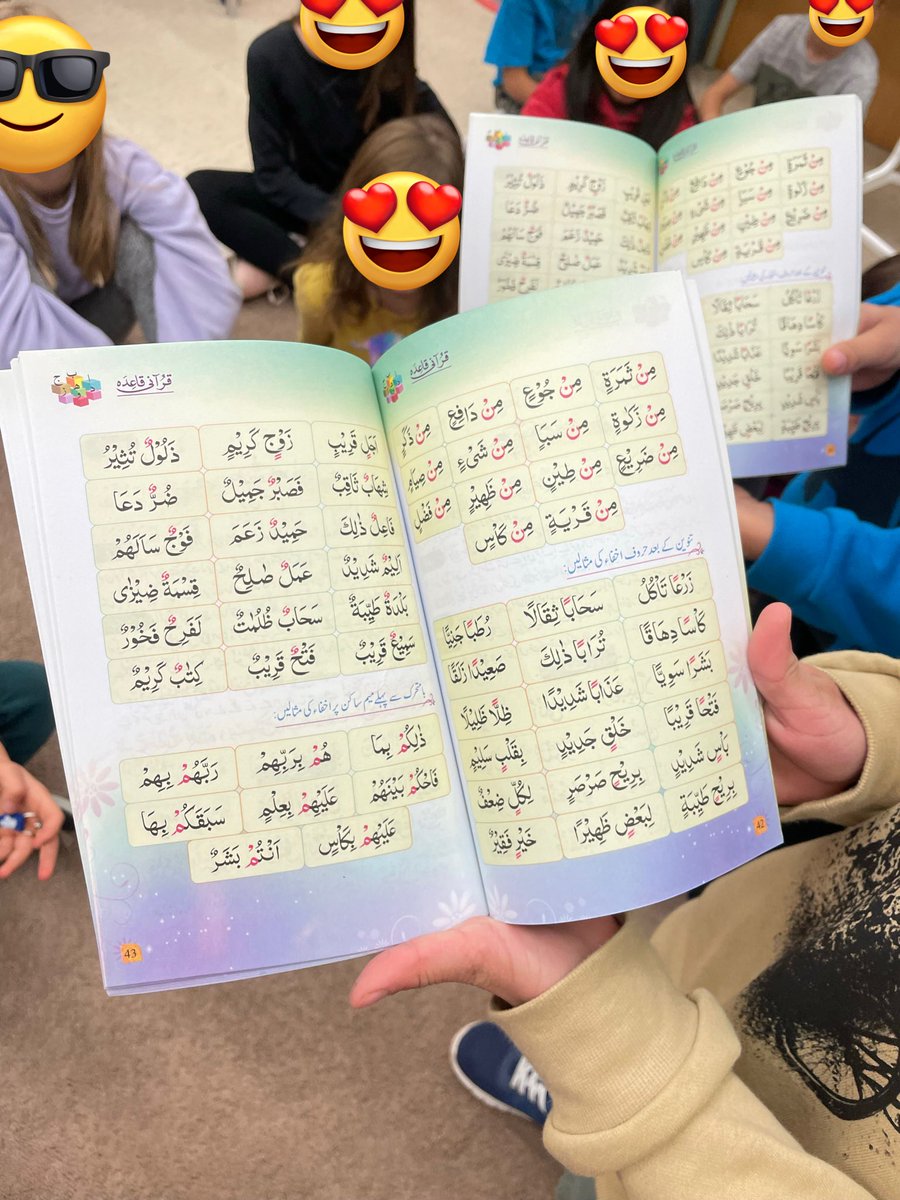 قرآنی قاعدہ
مِنْ ثَمَرَةٍ مِنْ جُوْعٍ مِنْ دَافِعٍ مِنْ ذَكَرٍ
مِنْ زَكٰوةٍ مِنْ سَبَاٍ مِنْ شَیْءٍ مِنْ صِيَامٍ
مِنْ ضَرِيْعٍ مِنْ طِيْنٍ مِنْ ظَهِيْرٍ مِنْ فَضْلٍ
مِنْ قَرْيَةٍ مِنْ كَاْسٍ
تنوین کے بعد حروف اخفاء کی مثالیں:
زَرْعًا تَاْكُلُ سَحَابًا ثِقَالًا رُطَبًا جَنِيًّا
كَاْسًا دِهَاقًا تُرَابًا ذٰلِكَ صَعِيْدًا زَلَقًا
بَشَرًا سَوِيًّا عَذَابًا شَدِيْدًا ظِلًّا ظَلِيْلًا
فَتْحًا قَرِيْبًا خَلْقٍ جَدِيْدٍ بِقَلْبٍ سَلِيْمٍ
بَاْسٍ شَدِيْدٍ بِرِيْحٍ صَرْصَرٍ لِكُلٍّ ضِعْفٌ
بِرِيْحٍ طَيِّبَةٍ لِبَعْضٍ ظَهِيْرًا خَيْرٍ فَقِيْرٌ
42
قرآنی قاعدہ
اَجَلٍ قَرِيْبٍ زَوْجٍ كَرِيْمٍ ذَلُوْلٌ تُثِيْرُ
شِهَابٌ ثَاقِبٌ فَصَبْرٌ جَمِيْلٌ ضُرٌّ دَعَا
فَاعِلٌ ذٰلِكَ حَمِيْدٌ زَعَمَ فَوْجٌ سَاَلَهُمْ
اَلِيْمٌ شَدِيْدٌ عَمَلٌ صَالِحٌ قِسْمَةٌ ضِيْزٰى
بَلْدَةٌ طَيِّبَةٌ سَحَابٌ ظُلُمٰتٌ لَفَرِحٌ فَخُوْرٌ
سَمِيْعٌ قَرِيْبٌ فَتْحٌ قَرِيْبٌ كِتٰبٌ كَرِيْمٌ
با متحرک سے پہلے میم ساکن پر اخفاء کی مثالیں:
ذٰلِكُمْ بِمَا هُمْ بِرَبِّهِمْ رَبَّهُمْ بِهِمْ
فَاحْكُمْ بَيْنَهُمْ عَلَيْهِمْ بِعِلْمٍ سَبَقَكُمْ بِهَا
عَلَيْهِمْ بِكَاْسٍ اَنْتُمْ بَشَرٌ
43